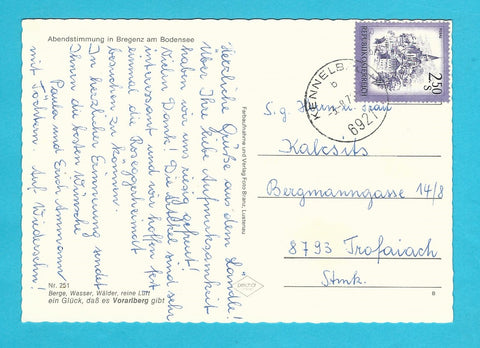 Abendstimmung in Bregenz am Bodensee
Herzliche Grüße aus dem "Landle"!
Über Ihre liebe Aufmerksamkeit
haben wir uns riesig gefreut!
Vielen Dank! Die Artikel sind sehr
interessant und wir hoffen fest
einmal die Roseggerheimat
besuchen zu können.
In herzlicher Erinnerung sendet
Ihnen die besten Wünsche
Paula und Erich Ammann
mit Töchtern. Auf Wiedersehn!
Nr. 251
Berge, Wasser, Wälder, reine Luft
ein Glück, daß es Vorarlberg gibt
Farbaufnahme und Verlag Foto Branz, Lustenau
KENNELB
b
6921
REPUBLIK ÖSTERREICH
2.50
S
S.g. Herrn u. Frau
Kalcsits
Bergmanngasse 14/8
8793 Trofaiach
Stmk.
8